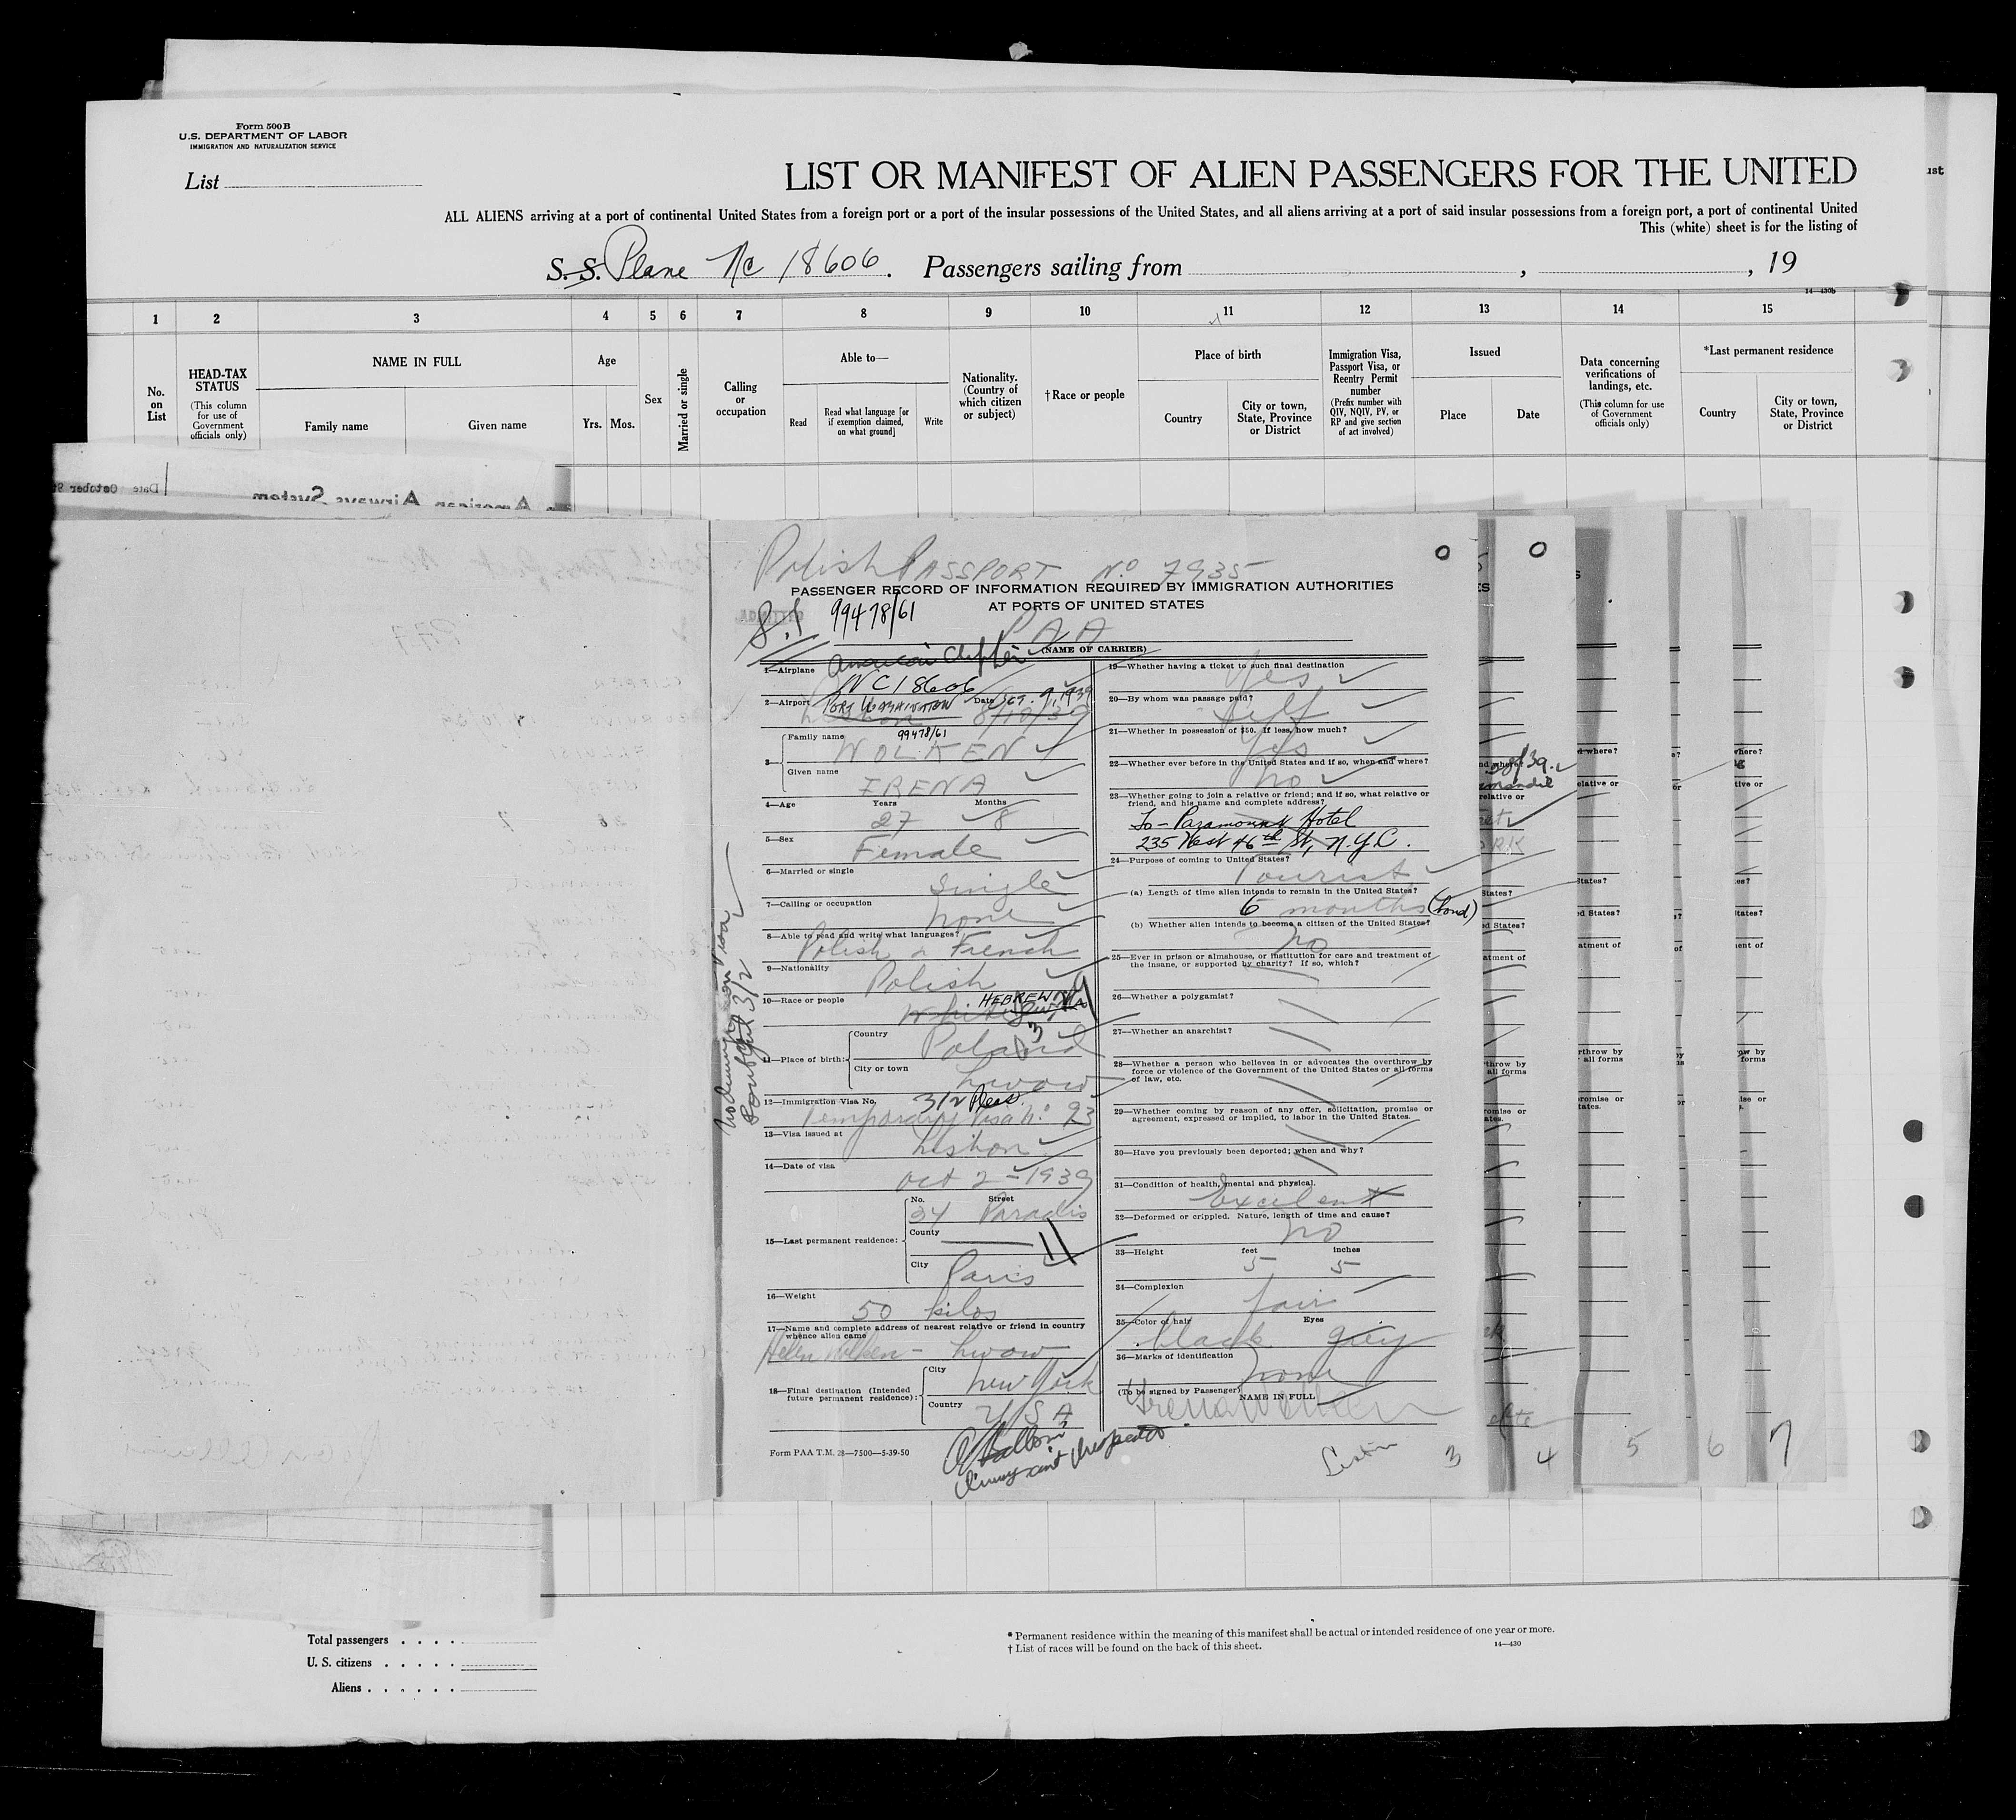 Form 500 B
U.S. DEPARTMENT OF LABOR
IMMIGRATION AND NATURALIZATION SERVICE
List
LIST OR MANIFEST OF ALIEN PASSENGERS FOR THE UNITED
ALL ALIENS arriving at a port of continental United States from a foreign port or a port of the insular possessions of the United States, and all aliens arriving at a port of said insular possessions from a foreign port, a port of continental United
This (white) sheet is for the listing of
S. S. Plane Nc 18606. Passengers sailing from , , 19
14—430b
1 2 3 4 5 6 7 8 9 10 11 12 13 14 15
No. on List
HEAD-TAX STATUS
(This column for use of Government officials only)
NAME IN FULL
Family name
Given name
Age
Yrs. Mos.
Sex
Married or single
Calling or occupation
Able to—
Read
Read what language [or if exemption claimed, on what ground]
Write
Nationality. (Country of which citizen or subject)
† Race or people
Place of birth
Country
City or town, State, Province or District
Immigration Visa, Passport Visa, or Reentry Permit number
(Prefix number with QIV, NQIV, PV, or RP and give section of act involved)
Issued
Place
Date
Data concerning verifications of landings, etc.
(This column for use of Government officials only)
*Last permanent residence
Country
City or town, State, Province or District
Polish PASSPORT No 7935
PASSENGER RECORD OF INFORMATION REQUIRED BY IMMIGRATION AUTHORITIES
AT PORTS OF UNITED STATES
99478/61
PAA
(NAME OF CARRIER)
1—Airplane American Clipper
NC 18606
2—Airport PORT WASHINGTON Date OCT. 9, 1939
Lisbon 8/10/39
99478/61
3— Family name WOLKEN
Given name IRENA
4—Age Years 27 Months 8
5—Sex Female
6—Married or single Single
7—Calling or occupation none
8—Able to read and write what languages? Polish & French
9—Nationality Polish
10—Race or people White HEBREW
11—Place of birth: Country Poland
City or town Lwow
12—Immigration Visa No. 3/2
Temporary Visa No 93
13—Visa issued at Lisbon
14—Date of visa Oct 2-1939
15—Last permanent residence: No. 34 Street Paradis
County
City Paris
16—Weight 50 kilos
17—Name and complete address of nearest relative or friend in country whence alien came
Helen Wolken - Lwow
18—Final destination (Intended future permanent residence): City New York
Country U S A
Form PAA T.M. 28—7500—5-39-50
19—Whether having a ticket to such final destination Yes
20—By whom was passage paid? Self
21—Whether in possession of $50. If less, how much? Yes
22—Whether ever before in the United States and if so, when and where? no
23—Whether going to join a relative or friend; and if so, what relative or friend, and his name and complete address?
To - Paramount Hotel
235 West 46th St, N.Y.C.
24—Purpose of coming to United States? Tourist
(a) Length of time alien intends to remain in the United States?
6 months (bond)
(b) Whether alien intends to become a citizen of the United States? no
25—Ever in prison or almshouse, or institution for care and treatment of the insane, or supported by charity? If so, which?
26—Whether a polygamist?
27—Whether an anarchist?
28—Whether a person who believes in or advocates the overthrow by force or violence of the Government of the United States or all forms of law, etc.
29—Whether coming by reason of any offer, solicitation, promise or agreement, expressed or implied, to labor in the United States.
30—Have you previously been deported; when and why?
31—Condition of health, mental and physical. Excelent
32—Deformed or crippled. Nature, length of time and cause? no
33—Height feet 5 inches 5
34—Complexion fair
35—Color of hair black Eyes grey
36—Marks of identification none
(To be signed by Passenger) NAME IN FULL
Irena Wolken
Immigrant Inspector
3 4 5 6 7
Total passengers
U. S. citizens
Aliens
* Permanent residence within the meaning of this manifest shall be actual or intended residence of one year or more.
† List of races will be found on the back of this sheet.
14—430